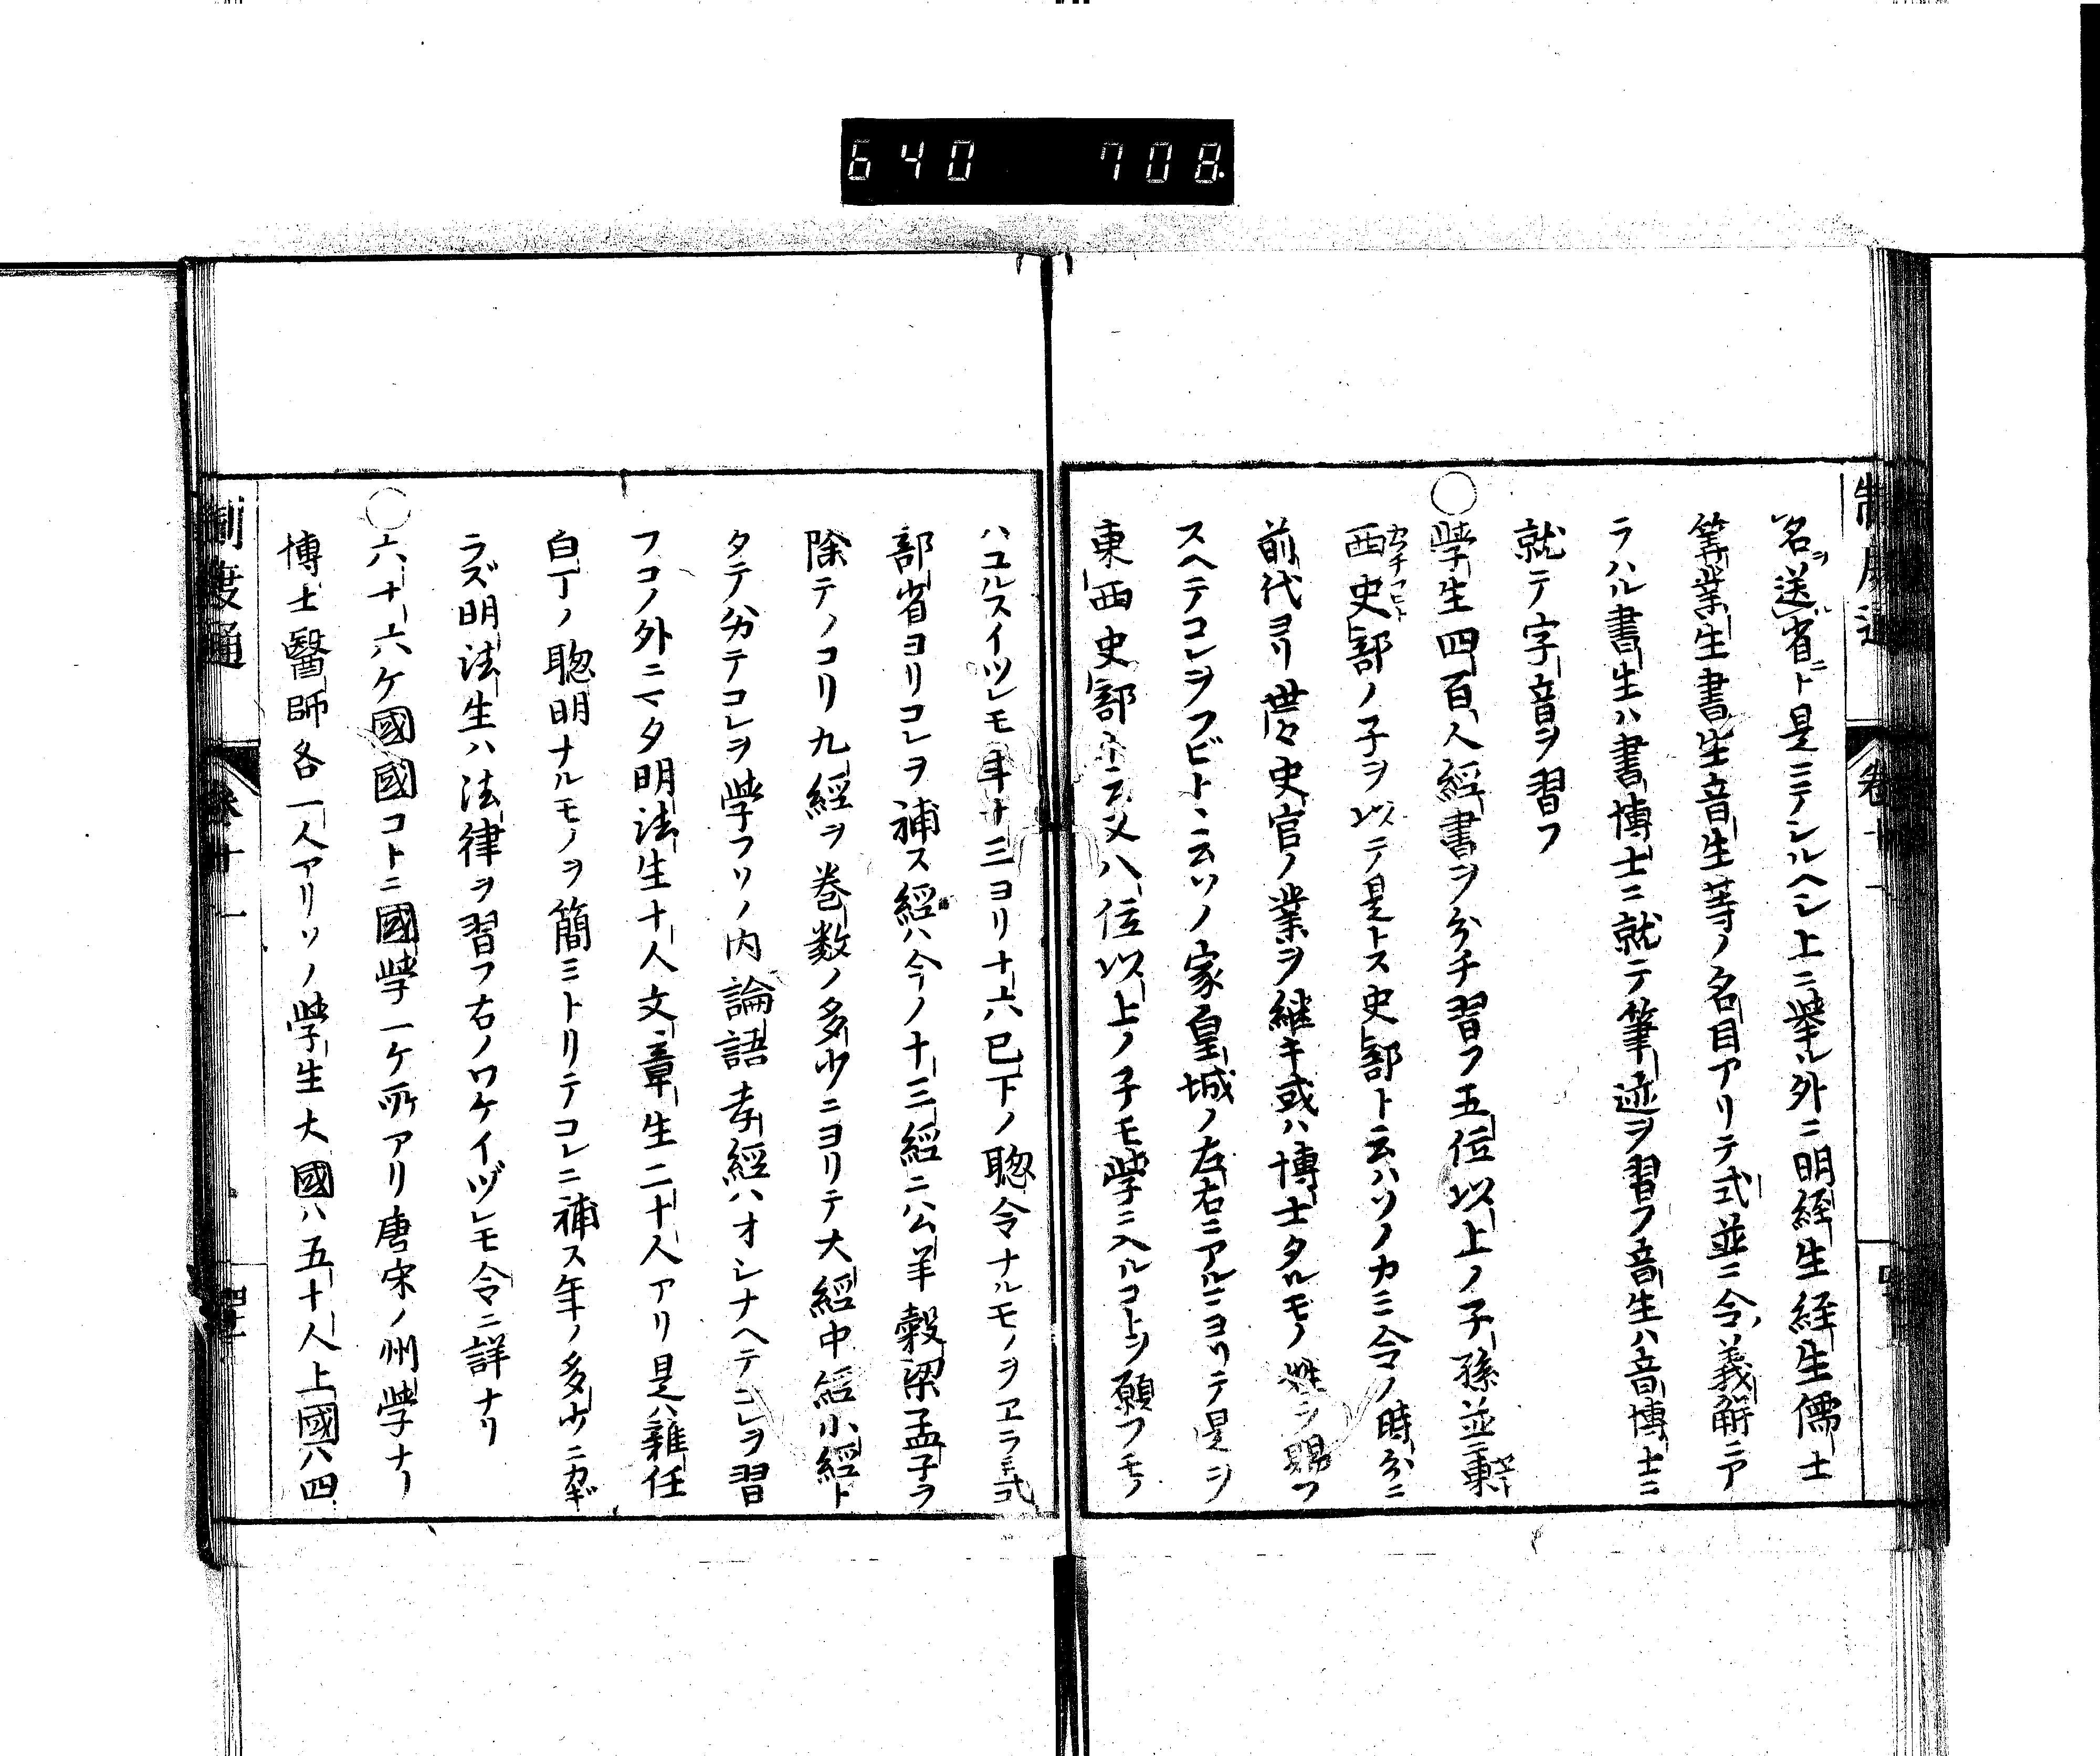 640 708
名ヲ送ル省ニト是ニテシルヘシ上ニ挙ル外ニ明経生経生儒士
筭業生書生音生等ノ名目アリテ式並ニ令ノ義解ニア
ラハル書生ハ書博士ニ就テ筆迹ヲ習フ音生ハ音博士ニ
就テ字音ヲ習フ
○学生四百人經書ヲ分チ習フ五位以上ノ子孫並東
西史部ノ子ヲ以テ是トス史部ト云ハソノカミ令ノ時分ニ
前代ヨリ世々史官ノ業ヲ継キ或ハ博士タルモノ姓ヲ賜フ
スヘテコレヲフビトヽ云ソノ家皇城ノ左右ニアルニヨリテ是ヲ
東西史部ト云又八位以上ノ子モ学ニ入ルコトヲ願フモノ
ハユルスイツレモ年十三ヨリ十六已下ノ聡令ナルモノヲヱラミ式
部省ヨリコレヲ補ス經ハ今ノ十三經ニ公羊穀梁孟子ヲ
除テノコリ九經ヲ巻数ノ多少ニヨリテ大經中經小經ト
タテ分テコレヲ学フソノ内論語孝經ハオシナヘテコレヲ習
フコノ外ニマタ明法生十人文章生二十人アリ是ハ雜任
白丁ノ聡明ナルモノヲ簡ミトリテコレニ補ス年ノ多少ニカギ
ラズ明法生ハ法律ヲ習フ右ノワケイヅレモ令ニ詳ナリ
○六十六ケ國國コトニ國学一ケ所アリ唐宋ノ州学ナリ
博士醫師各一人アリソノ学生大國ハ五十人上國ハ四
制度通 卷十一